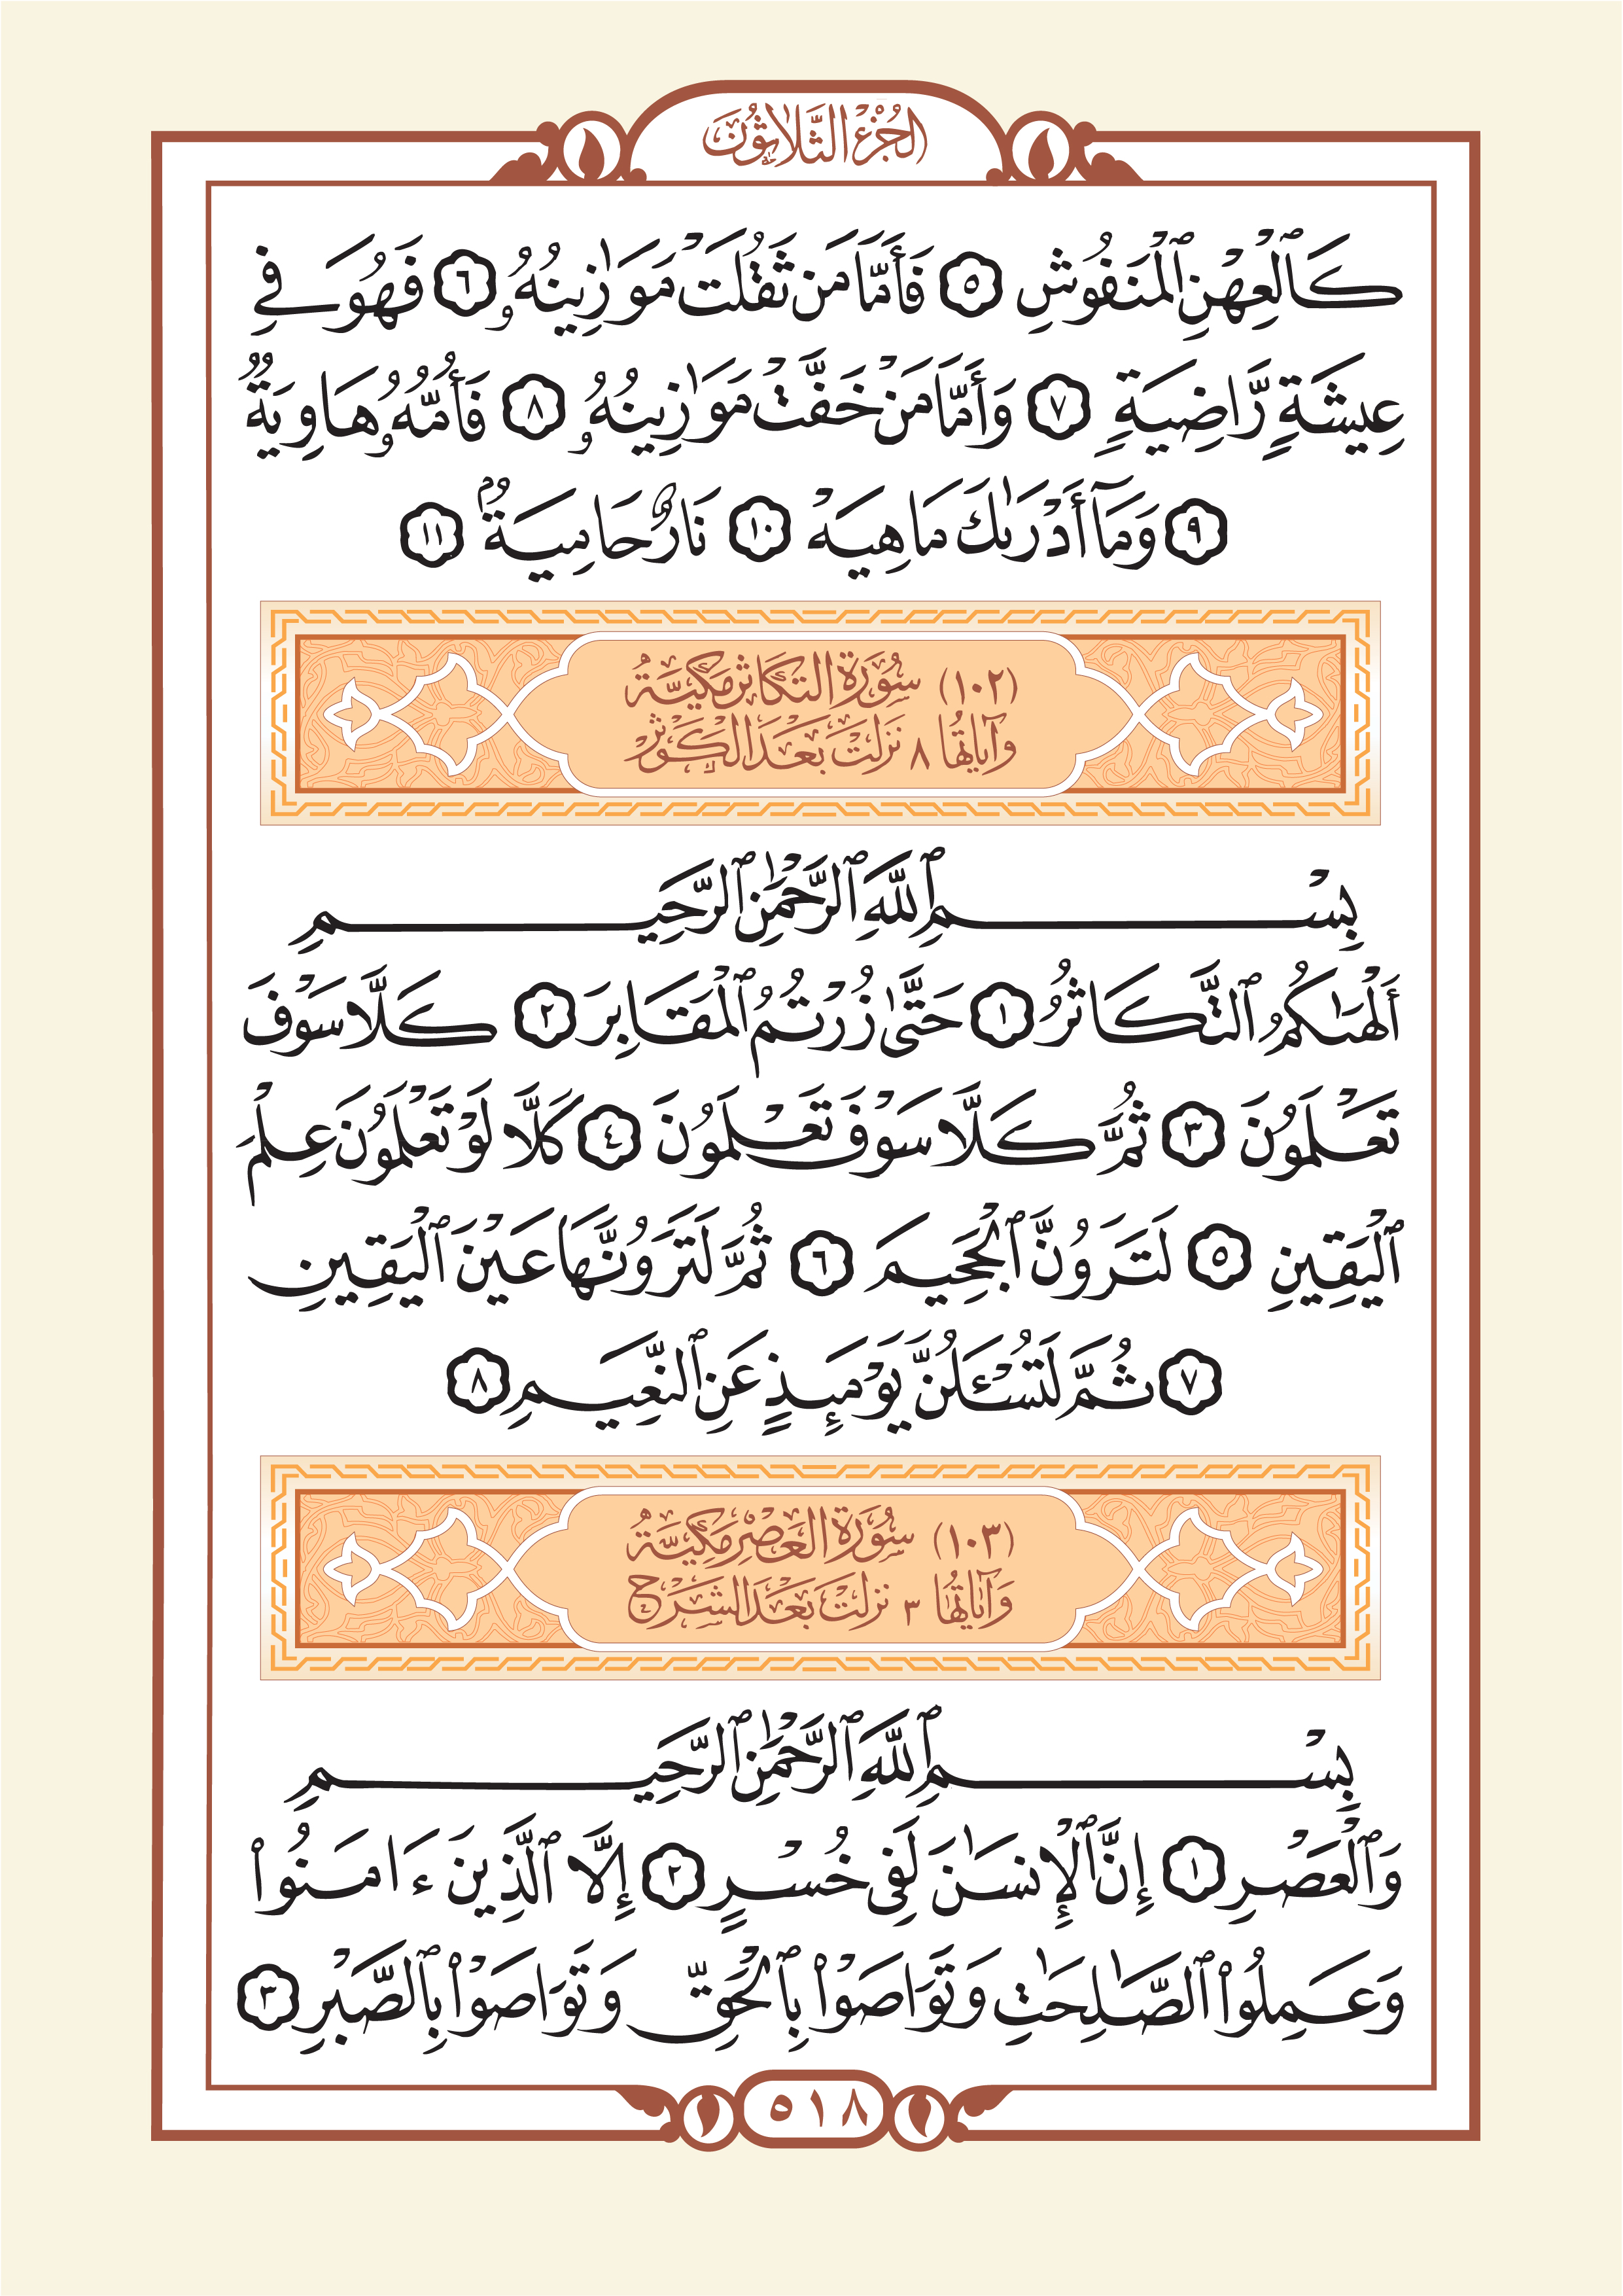 الجُزْءُ الثَّلَاثُونَ
كَٱلْعِهْنِ ٱلْمَنفُوشِ ٥ فَأَمَّا مَن ثَقُلَتْ مَوَٰزِينُهُۥ ٦ فَهُوَ فِى
عِيشَةٍ رَّاضِيَةٍ ٧ وَأَمَّا مَنْ خَفَّتْ مَوَٰزِينُهُۥ ٨ فَأُمُّهُۥ هَاوِيَةٌ
٩ وَمَآ أَدْرَىٰكَ مَا هِيَهْ ١٠ نَارٌ حَامِيَةٌۢ ١١
(١٠٢) سُورَةُ التَّكَاثُرِ مَكِّيَّةٌ
وَآيَاتُهَا ٨ نَزَلَتْ بَعْدَ الْكَوْثَرِ
بِسْمِ ٱللَّهِ ٱلرَّحْمَٰنِ ٱلرَّحِيمِ
أَلْهَىٰكُمُ ٱلتَّكَاثُرُ ١ حَتَّىٰ زُرْتُمُ ٱلْمَقَابِرَ ٢ كَلَّا سَوْفَ
تَعْلَمُونَ ٣ ثُمَّ كَلَّا سَوْفَ تَعْلَمُونَ ٤ كَلَّا لَوْ تَعْلَمُونَ عِلْمَ
ٱلْيَقِينِ ٥ لَتَرَوُنَّ ٱلْجَحِيمَ ٦ ثُمَّ لَتَرَوُنَّهَا عَيْنَ ٱلْيَقِينِ
٧ ثُمَّ لَتُسْـَٔلُنَّ يَوْمَئِذٍ عَنِ ٱلنَّعِيمِ ٨
(١٠٣) سُورَةُ الْعَصْرِ مَكِّيَّةٌ
وَآيَاتُهَا ٣ نَزَلَتْ بَعْدَ الشَّرْحِ
بِسْمِ ٱللَّهِ ٱلرَّحْمَٰنِ ٱلرَّحِيمِ
وَٱلْعَصْرِ ١ إِنَّ ٱلْإِنسَٰنَ لَفِى خُسْرٍ ٢ إِلَّا ٱلَّذِينَ ءَامَنُوا۟
وَعَمِلُوا۟ ٱلصَّٰلِحَٰتِ وَتَوَاصَوْا۟ بِٱلْحَقِّ وَتَوَاصَوْا۟ بِٱلصَّبْرِ ٣
٥١٨